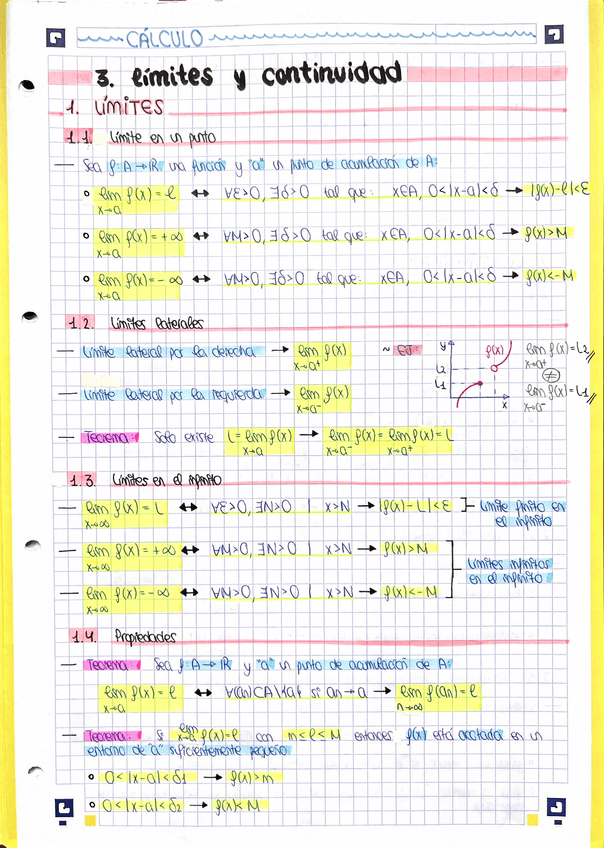 CÁLCULO
3. límites y continuidad
1. LÍMITES
1.1. Límite en un punto
— Sea f: A → ℝ una función y "a" un punto de acumulación de A:
lim f(x) = l ↔ ∀ε>0, ∃δ>0 tal que: x∈A, 0<|x-a|<δ → |f(x)-l|<ε
x→a
lim f(x) = +∞ ↔ ∀M>0, ∃δ>0 tal que: x∈A, 0<|x-a|<δ → f(x)>M
x→a
lim f(x) = -∞ ↔ ∀M>0, ∃δ>0 tal que: x∈A, 0<|x-a|<δ → f(x)<-M
x→a
1.2. Límites laterales
— Límite lateral por la derecha → lim f(x)
x→a⁺
— Límite lateral por la izquierda → lim f(x)
x→a⁻
~ EJ:
y
f(x)
L2
L1
x
lim f(x) = L2
x→a⁺
≠
lim f(x) = L1
x→a⁻
— Teorema: Solo existe L = lim f(x) → lim f(x) = lim f(x) = L
x→a x→a⁻ x→a⁺
1.3. Límites en el infinito
— lim f(x) = L ↔ ∀ε>0, ∃N>0 | x>N → |f(x)-L|<ε
x→∞
Límite finito en
el infinito
— lim f(x) = +∞ ↔ ∀M>0, ∃N>0 | x>N → f(x)>M
x→∞
Límites infinitos
en el infinito
— lim f(x) = -∞ ↔ ∀M>0, ∃N>0 | x>N → f(x)<-M
x→∞
1.4. Propiedades
— Teorema: Sea f: A → ℝ y "a" un punto de acumulación de A:
lim f(x) = l ↔ ∀(an)⊂A\{a} si an → a → lim f(an) = l
x→a n→∞
— Teorema: Si lim f(x) = l con m<l<M entonces f(x) está acotada en un
x→a
entorno de "a" suficientemente pequeño
0<|x-a|<δ1 → f(x)>m
0<|x-a|<δ2 → f(x)<M